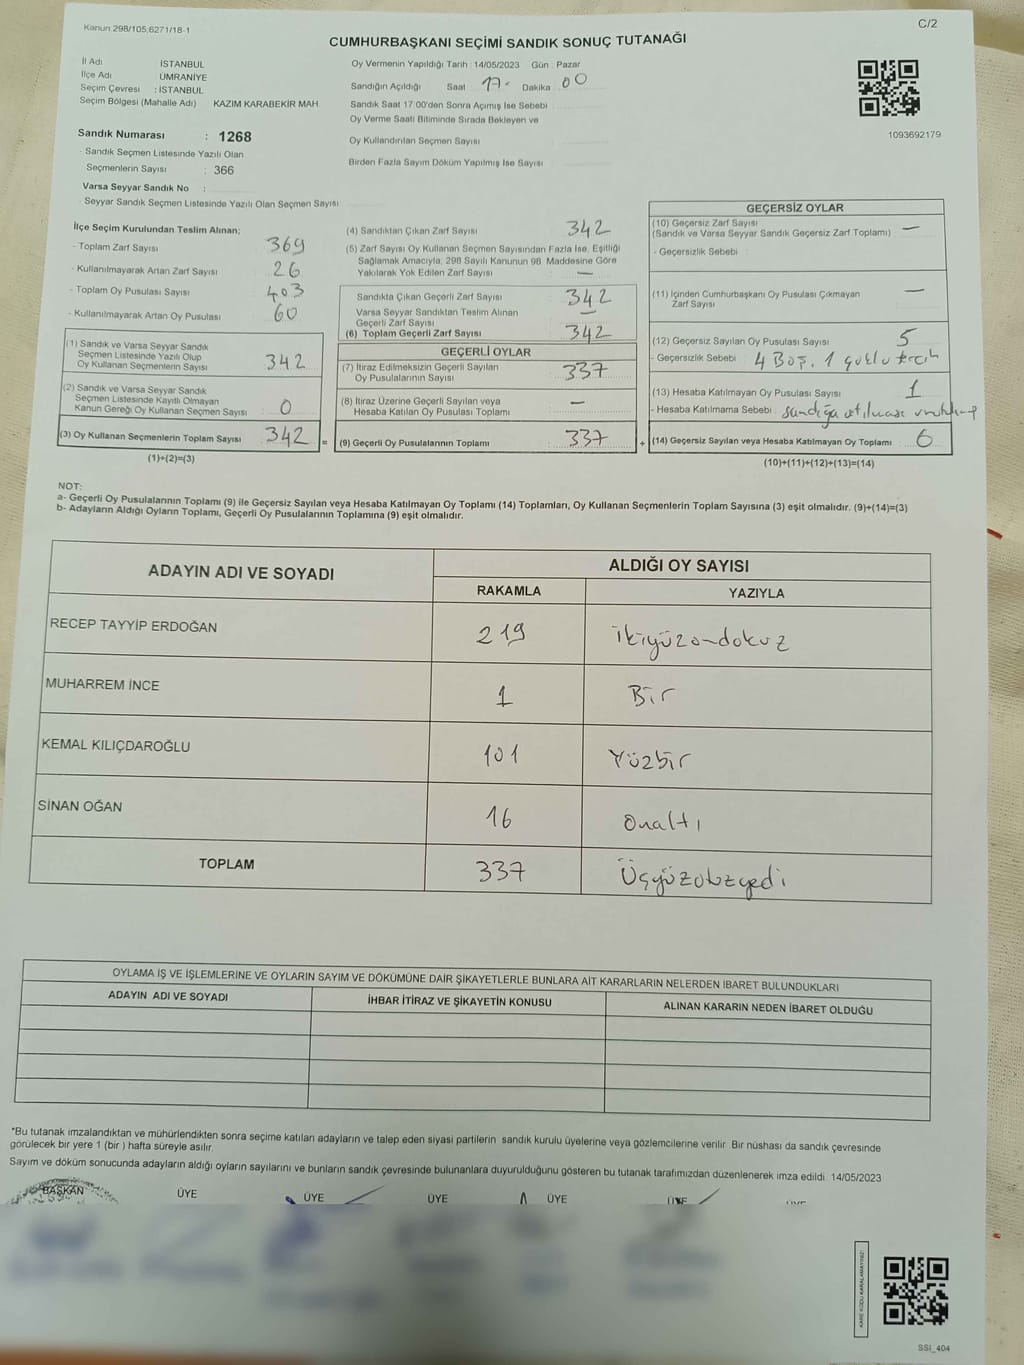 Kanun 298/105,6271/18-1
C/2
CUMHURBAŞKANI SEÇİMİ SANDIK SONUÇ TUTANAĞI
İl Adı İSTANBUL
İlçe Adı ÜMRANİYE
Seçim Çevresi : İSTANBUL
Seçim Bölgesi (Mahalle Adı) KAZIM KARABEKİR MAH.
Oy Vermenin Yapıldığı Tarih : 14/05/2023 Gün : Pazar
Sandığın Açıldığı Saat 17 Dakika 00
Sandık Saat 17:00'den Sonra Açmış İse Sebebi
Oy Verme Saati Bitiminde Sırada Bekleyen ve
Oy Kullandırılan Seçmen Sayısı
Birden Fazla Sayım Döküm Yapılmış İse Sayısı
1093692179
Sandık Numarası : 1268
- Sandık Seçmen Listesinde Yazılı Olan
Seçmenlerin Sayısı : 366
Varsa Seyyar Sandık No :
- Seyyar Sandık Seçmen Listesinde Yazılı Olan Seçmen Sayısı
İlçe Seçim Kurulundan Teslim Alınan;
- Toplam Zarf Sayısı 369
- Kullanılmayarak Artan Zarf Sayısı 26
- Toplam Oy Pusulası Sayısı 403
- Kullanılmayarak Artan Oy Pusulası 60
(1) Sandık ve Varsa Seyyar Sandık
Seçmen Listesinde Yazılı Olup
Oy Kullanan Seçmenlerin Sayısı 342
(2) Sandık ve Varsa Seyyar Sandık
Seçmen Listesinde Kayıtlı Olmayan
Kanun Gereği Oy Kullanan Seçmen Sayısı 0
(3) Oy Kullanan Seçmenlerin Toplam Sayısı 342 =
(1)+(2)=(3)
(4) Sandıktan Çıkan Zarf Sayısı 342
(5) Zarf Sayısı Oy Kullanan Seçmen Sayısından Fazla İse, Eşitliği
Sağlamak Amacıyla, 298 Sayılı Kanunun 98. Maddesine Göre
Yakılarak Yok Edilen Zarf Sayısı —
Sandıkta Çıkan Geçerli Zarf Sayısı 342
Varsa Seyyar Sandıktan Teslim Alınan
Geçerli Zarf Sayısı —
(6) Toplam Geçerli Zarf Sayısı 342
GEÇERLİ OYLAR
(7) İtiraz Edilmeksizin Geçerli Sayılan
Oy Pusulalarının Sayısı 337
(8) İtiraz Üzerine Geçerli Sayılan veya
Hesaba Katılan Oy Pusulası Toplamı —
(9) Geçerli Oy Pusulalarının Toplamı 337 +
GEÇERSİZ OYLAR
(10) Geçersiz Zarf Sayısı
(Sandık ve Varsa Seyyar Sandık Geçersiz Zarf Toplamı) —
- Geçersizlik Sebebi :
(11) İçinden Cumhurbaşkanı Oy Pusulası Çıkmayan
Zarf Sayısı —
(12) Geçersiz Sayılan Oy Pusulası Sayısı 5
- Geçersizlik Sebebi 4 Boş, 1 çoklu tercih
(13) Hesaba Katılmayan Oy Pusulası Sayısı 1
- Hesaba Katılmama Sebebi sandığa atılması
(14) Geçersiz Sayılan veya Hesaba Katılmayan Oy Toplamı 6
(10)+(11)+(12)+(13)=(14)
NOT:
a- Geçerli Oy Pusulalarının Toplamı (9) ile Geçersiz Sayılan veya Hesaba Katılmayan Oy Toplamı (14) Toplamları, Oy Kullanan Seçmenlerin Toplam Sayısına (3) eşit olmalıdır. (9)+(14)=(3)
b- Adayların Aldığı Oyların Toplamı, Geçerli Oy Pusulalarının Toplamına (9) eşit olmalıdır.
ADAYIN ADI VE SOYADI
ALDIĞI OY SAYISI
RAKAMLA YAZIYLA
RECEP TAYYİP ERDOĞAN 219 İkiyüzondokuz
MUHARREM İNCE 1 Bir
KEMAL KILIÇDAROĞLU 101 Yüzbir
SİNAN OĞAN 16 Onaltı
TOPLAM 337 Üçyüzotuzyedi
OYLAMA İŞ VE İŞLEMLERİNE VE OYLARIN SAYIM VE DÖKÜMÜNE DAİR ŞİKAYETLERLE BUNLARA AİT KARARLARIN NELERDEN İBARET BULUNDUKLARI
ADAYIN ADI VE SOYADI İHBAR İTİRAZ VE ŞİKAYETİN KONUSU ALINAN KARARIN NEDEN İBARET OLDUĞU
*Bu tutanak imzalandıktan ve mühürlendikten sonra seçime katılan adayların ve talep eden siyasi partilerin sandık kurulu üyelerine veya gözlemcilerine verilir. Bir nüshası da sandık çevresinde
görülecek bir yere 1 (bir ) hafta süreyle asılır.
Sayım ve döküm sonucunda adayların aldığı oyların sayılarını ve bunların sandık çevresinde bulunanlara duyurulduğunu gösteren bu tutanak tarafımızdan düzenlenerek imza edildi. 14/05/2023
BAŞKAN ÜYE ÜYE ÜYE ÜYE ÜYE ÜYE
KARE KODU KARALAMAYINIZ!
SSI_404